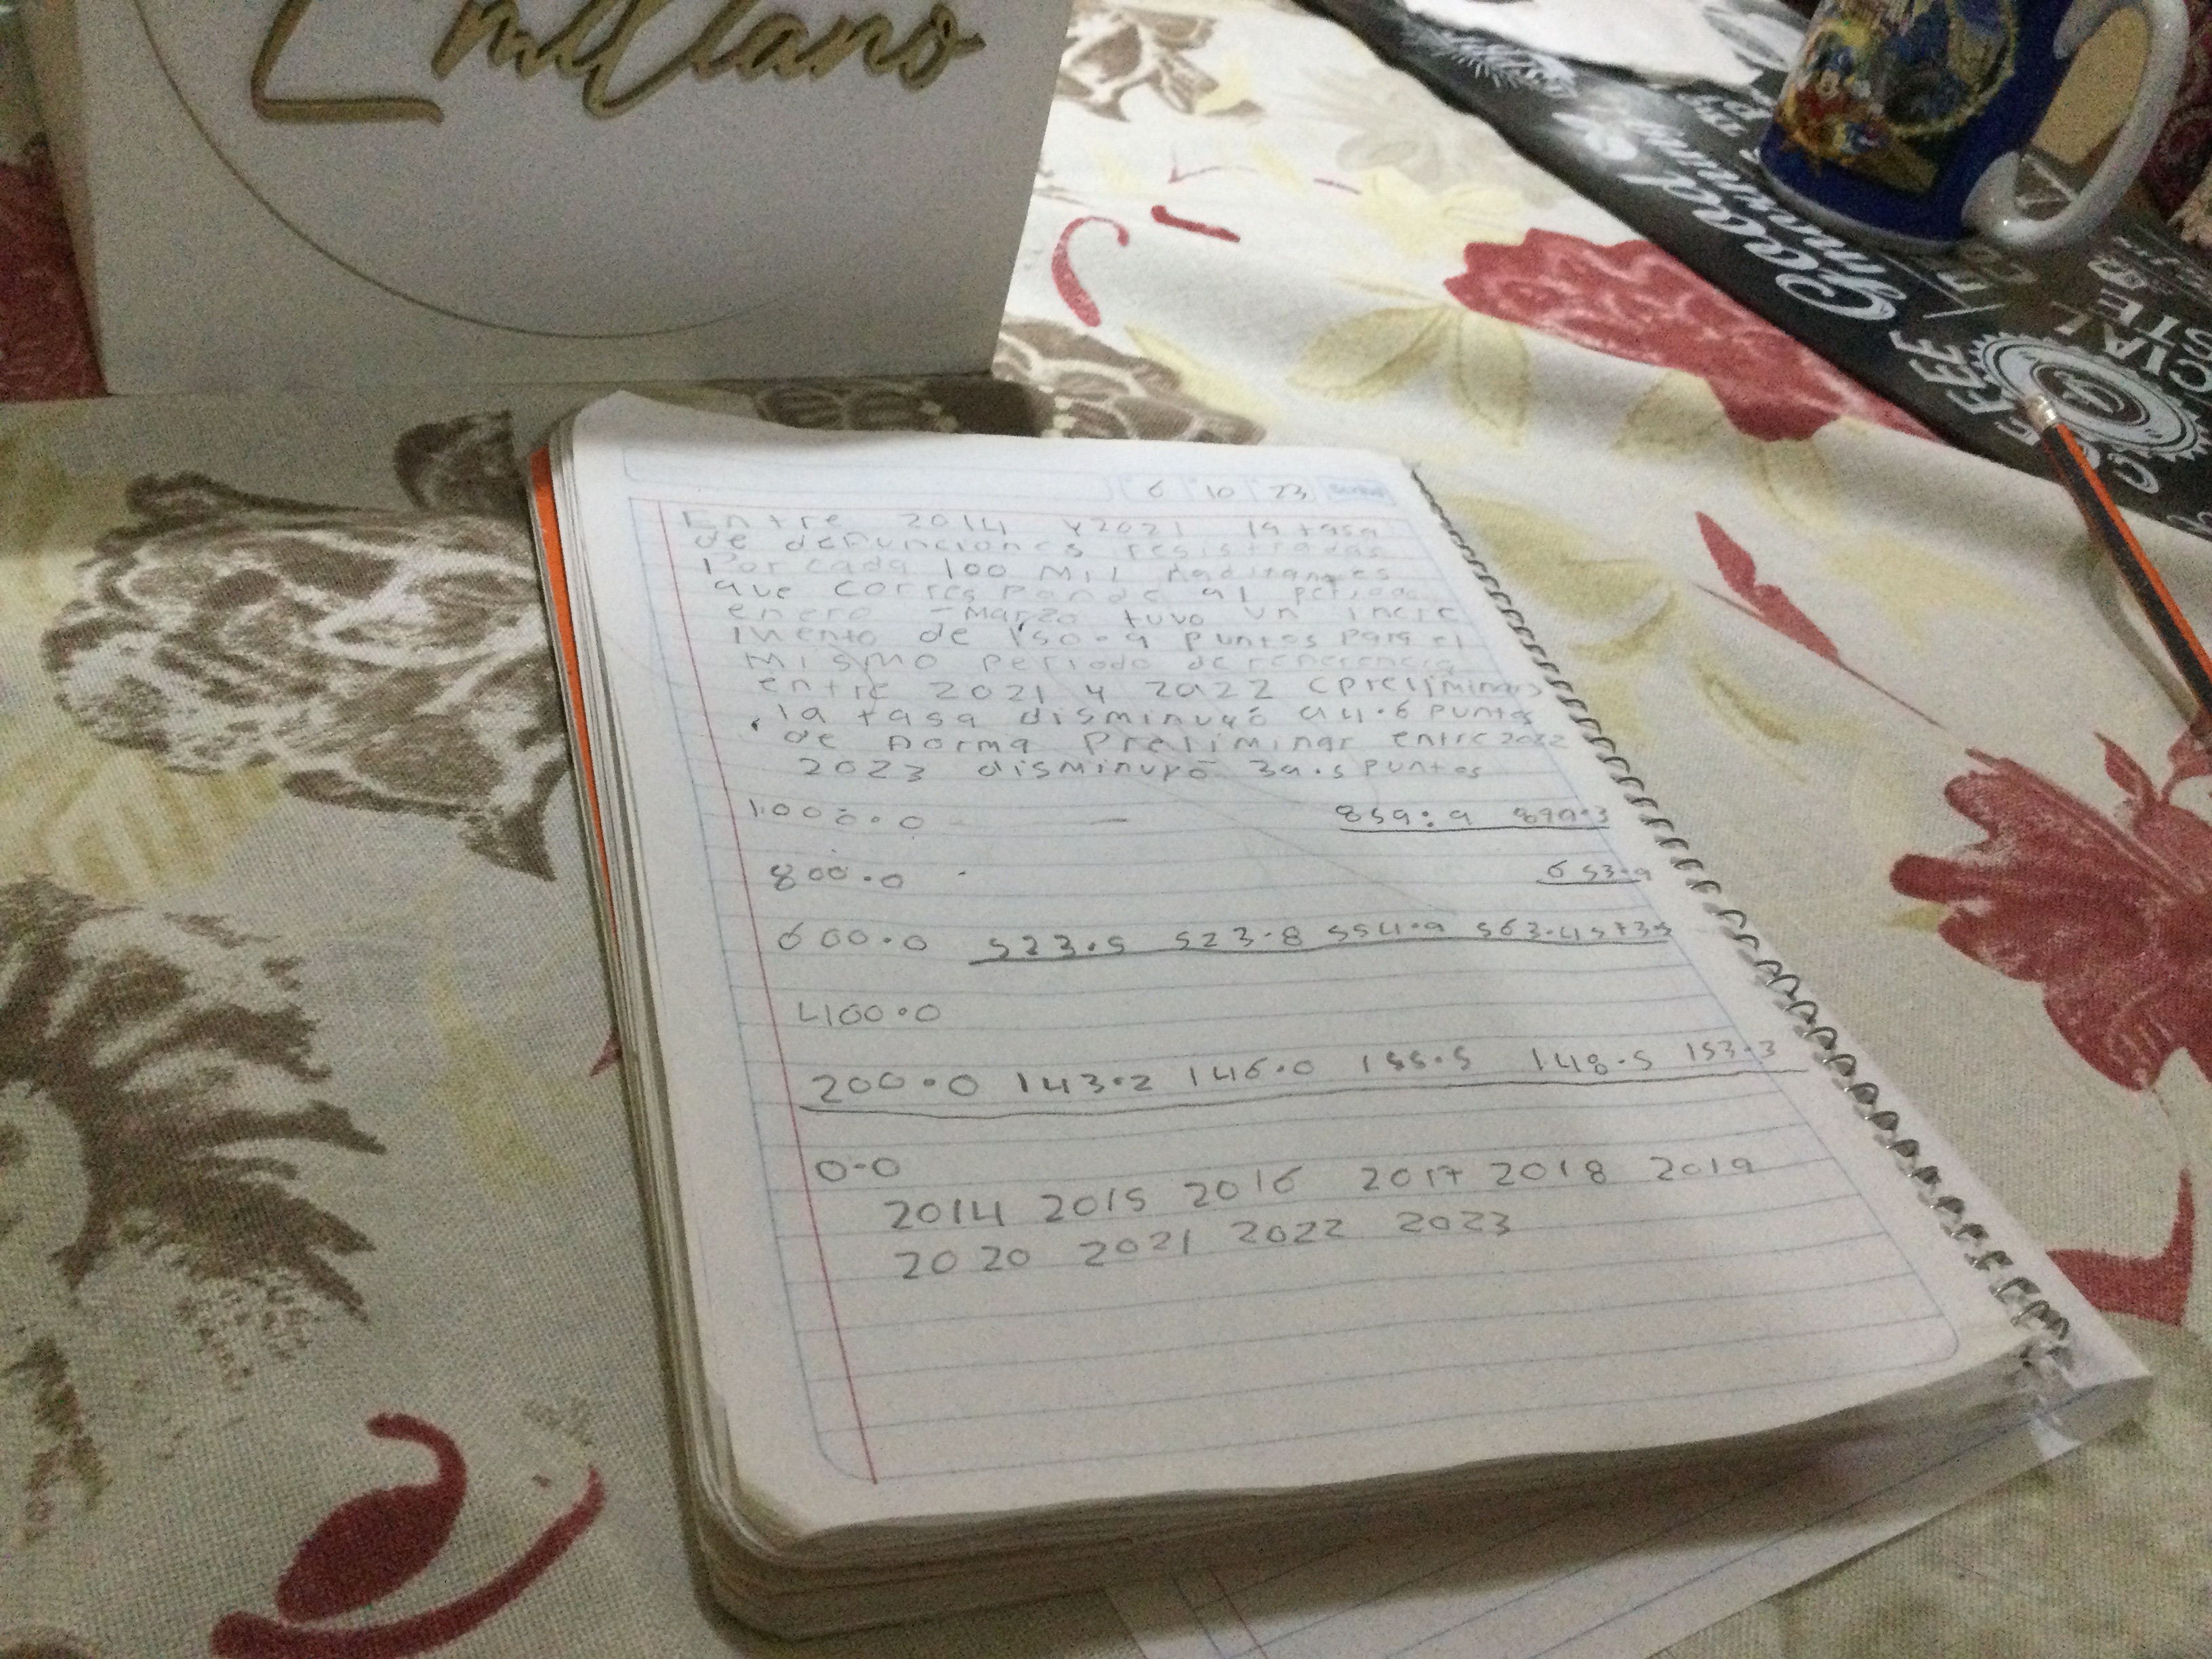 Emiliano
Good
morning
COFFEE
6 10 23
Entre 2014 y 2021 la tasa
de defunciones registradas
Por cada 100 Mil habitantes
que corresponde al periodo
enero - Marzo tuvo un incre
mento de 150.9 puntos para el
mismo periodo de referencia
entre 2021 y 2022 (preliminar)
, la tasa disminuyó a 4.6 puntos
de Forma Preliminar entre 2022
2023 disminuyó 39.5 puntos
1000.0 859.9
800.0 653.9
600.0 523.5 523.8 554.9 563.4 573.5
400.0
200.0 143.2 146.0 155.5 148.5 153.3
0.0
2014 2015 2016 2017 2018 2019
2020 2021 2022 2023